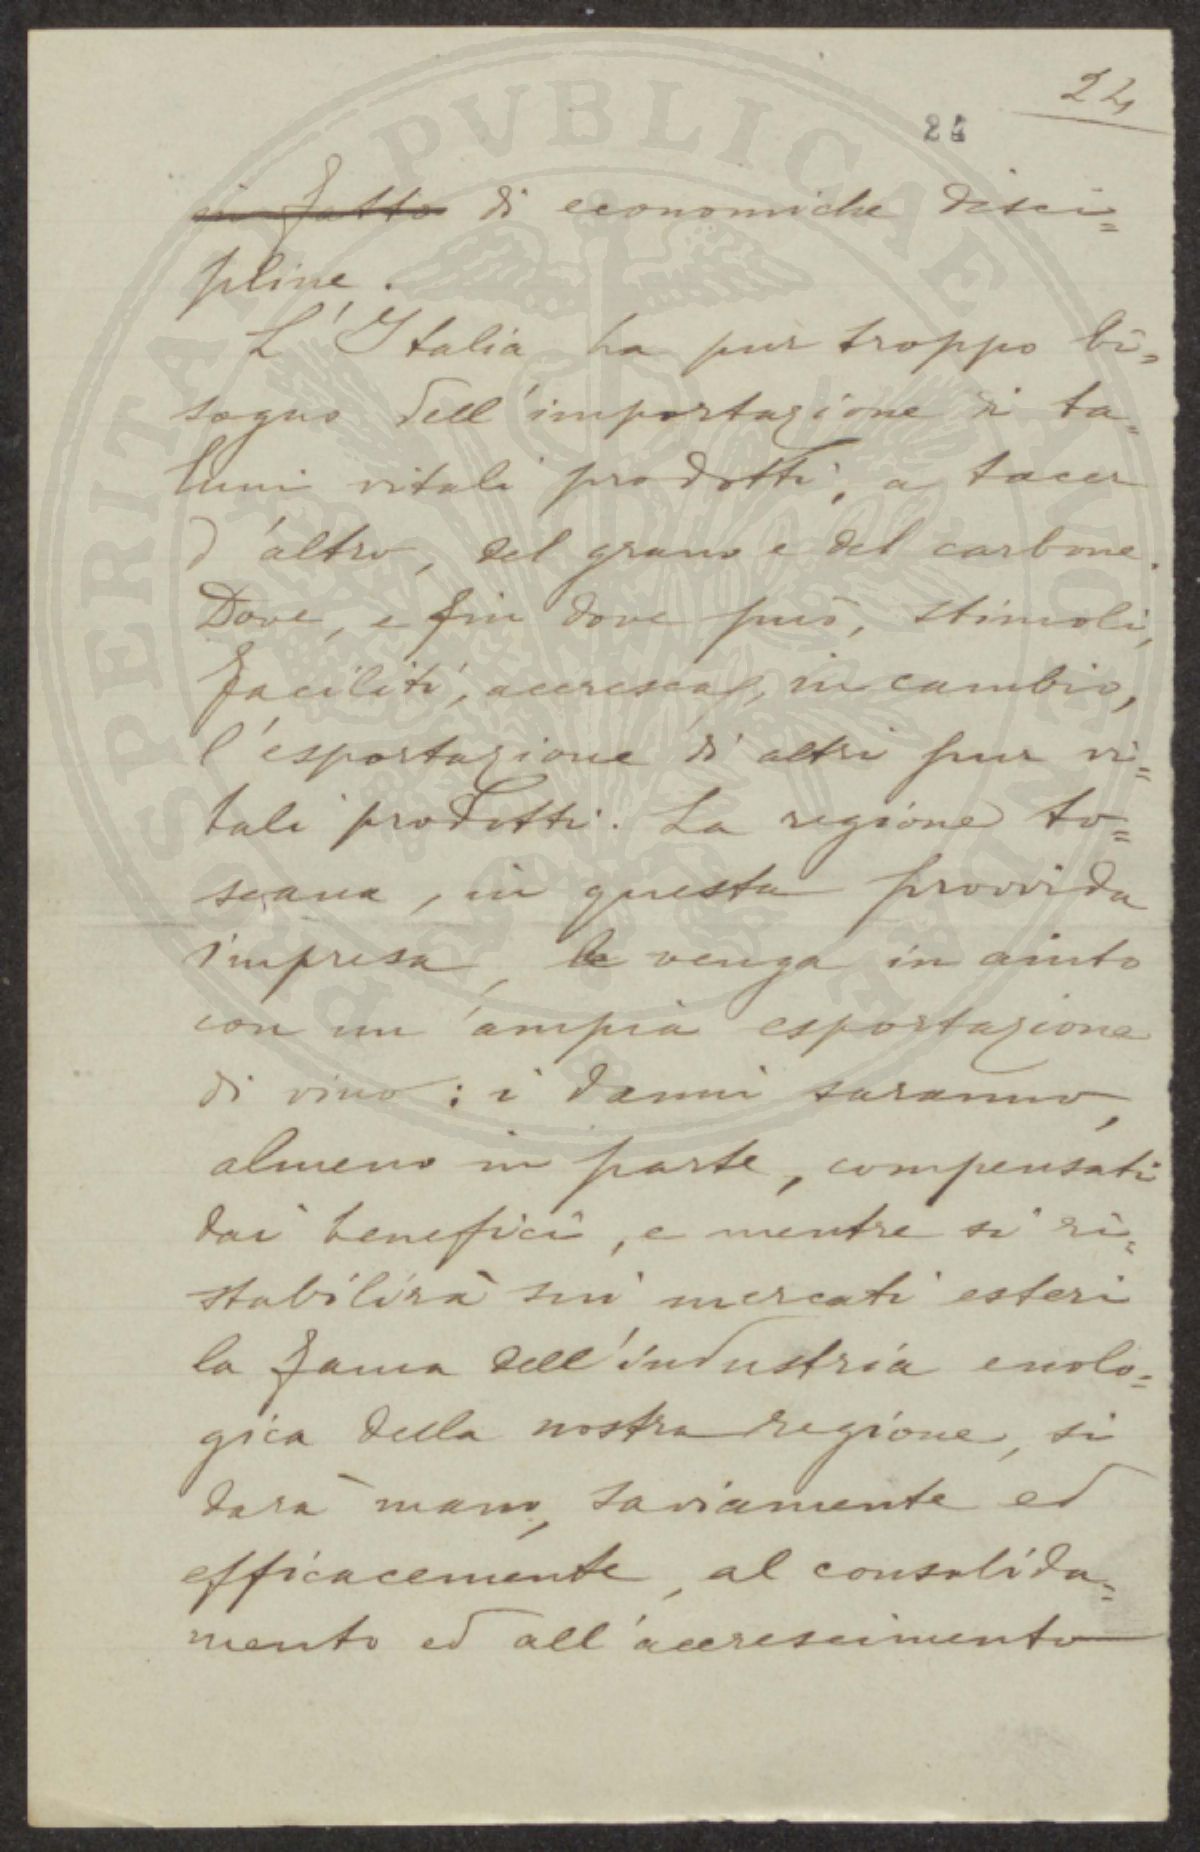 24
24
in fatto di economiche disci=
pline.
L'Italia ha pur troppo bi=
sogno dell'importazione di ta=
luni vitali prodotti, a tacer
d'altro, del grano e del carbone.
Dove, e fin dove può, stimoli,
faciliti, accresca, in cambio,
l'esportazione di altri pur vi=
tali prodotti. La regione to=
scana, in questa provvida
impresa, le venga in aiuto
con un'ampia esportazione
di vino: i danni saranno,
almeno in parte, compensati
dai beneficii, e mentre si ri=
stabilirà sui mercati esteri
la fama dell'industria enolo=
gica della nostra regione, si
darà mano, saviamente ed
efficacemente, al consolida=
mento ed all'accrescimento
PROSPERITATI PVBLICAE AVGENDAE